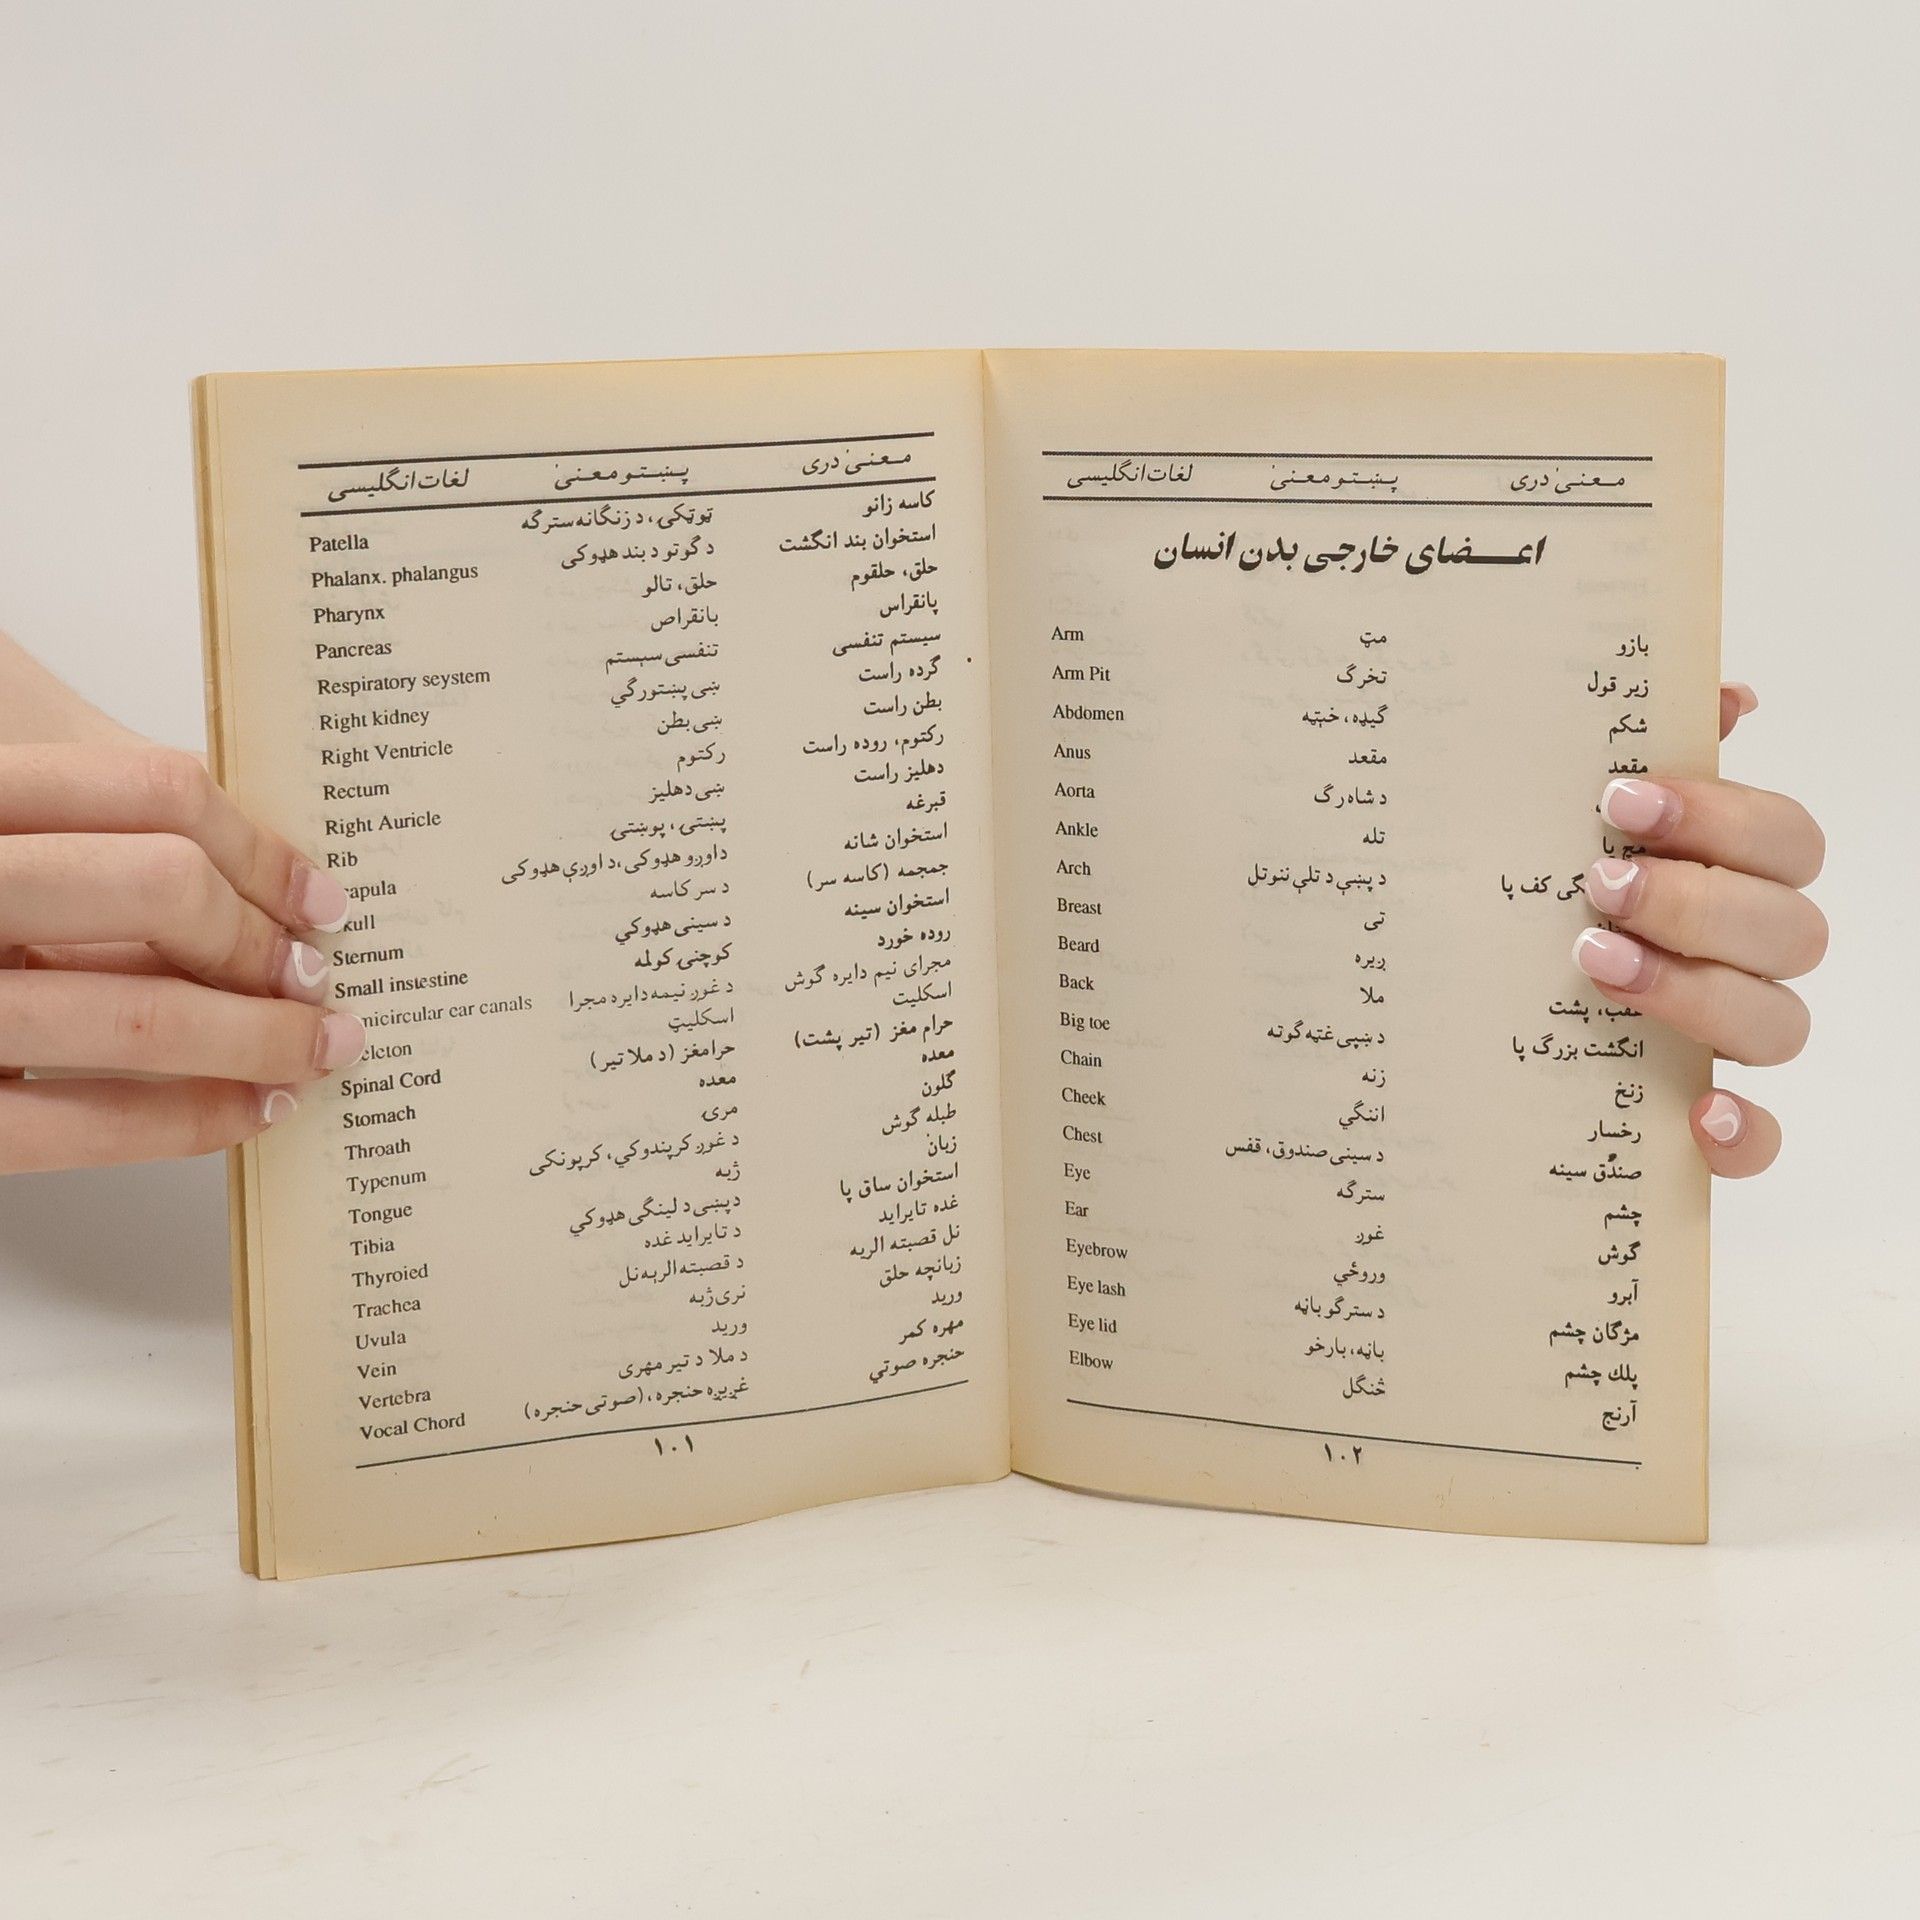 لغات انگلیسی پښتو معنیٰ معنیٰ دری
Patella ټوټکۍ، د زنگانه سترگه کاسه زانو
Phalanx. phalangus د گوتو د بند هډوکی استخوان بند انگشت
Pharynx حلق، تالو حلق، حلقوم
Pancreas بانقراص پانقراس
Respiratory seystem تنفسی سیستم سیستم تنفسی
Right kidney ښی پښتورگي گرده راست
Right Ventricle ښی بطن بطن راست
Rectum رکتوم رکتوم، روده راست
Right Auricle ښی دهلیز دهلیز راست
Rib پښتۍ، پوښتۍ قبرغه
apula داوږو هډوکی، د اوږې هډوکی استخوان شانه
kull د سر کاسه جمجمه (کاسه سر)
Sternum د سینی هډوکي استخوان سینه
Small instestine کوچنۍ کولمه روده خورد
micircular ear canals د غوږ نیمه دایره مجرا مجرای نیم دایره گوش
eleton اسکلیټ اسکلیت
Spinal Cord حرامغز (د ملا تیر) حرام مغز (تیر پشت)
Stomach معده معده
Throath مرۍ گلون
Typenum د غوږ کرپندوکي، کرپونکی طبله گوش
Tongue ژبه زبان
Tibia د پښی د لینگی هډوکي استخوان ساق پا
Thyroied د تایراید غده غده تایراید
Trachea د قصبته الریه نل نل قصبته الریه
Uvula نری ژبه زبانچه حلق
Vein ورید ورید
Vertebra د ملا د تیر مهری مهره کمر
Vocal Chord غږیزه حنجره، (صوتی حنجره) حنجره صوتي
۱۰۱
لغات انگلیسی پښتو معنیٰ معنیٰ دری
اعضای خارجی بدن انسان
Arm مټ بازو
Arm Pit تخرگ زیر قول
Abdomen گیډه، خېټه شکم
Anus مقعد مقعد
Aorta د شاه رگ
Ankle تله مچ پا
Arch د پښې د تلې ننوتل گی کف پا
Breast تی
Beard ږیره
Back ملا عقب، پشت
Big toe د ښپی غټه گوته انگشت بزرگ پا
Chain زنه زنخ
Cheek اننگي رخسار
Chest د سینی صندوق، قفس صندُق سینه
Eye سترگه چشم
Ear غوږ گوش
Eyebrow وروځي آبرو
Eye lash د سترگو باڼه مژگان چشم
Eye lid باڼه، بارخو پلك چشم
Elbow څنگل آرنج
۱۰۲